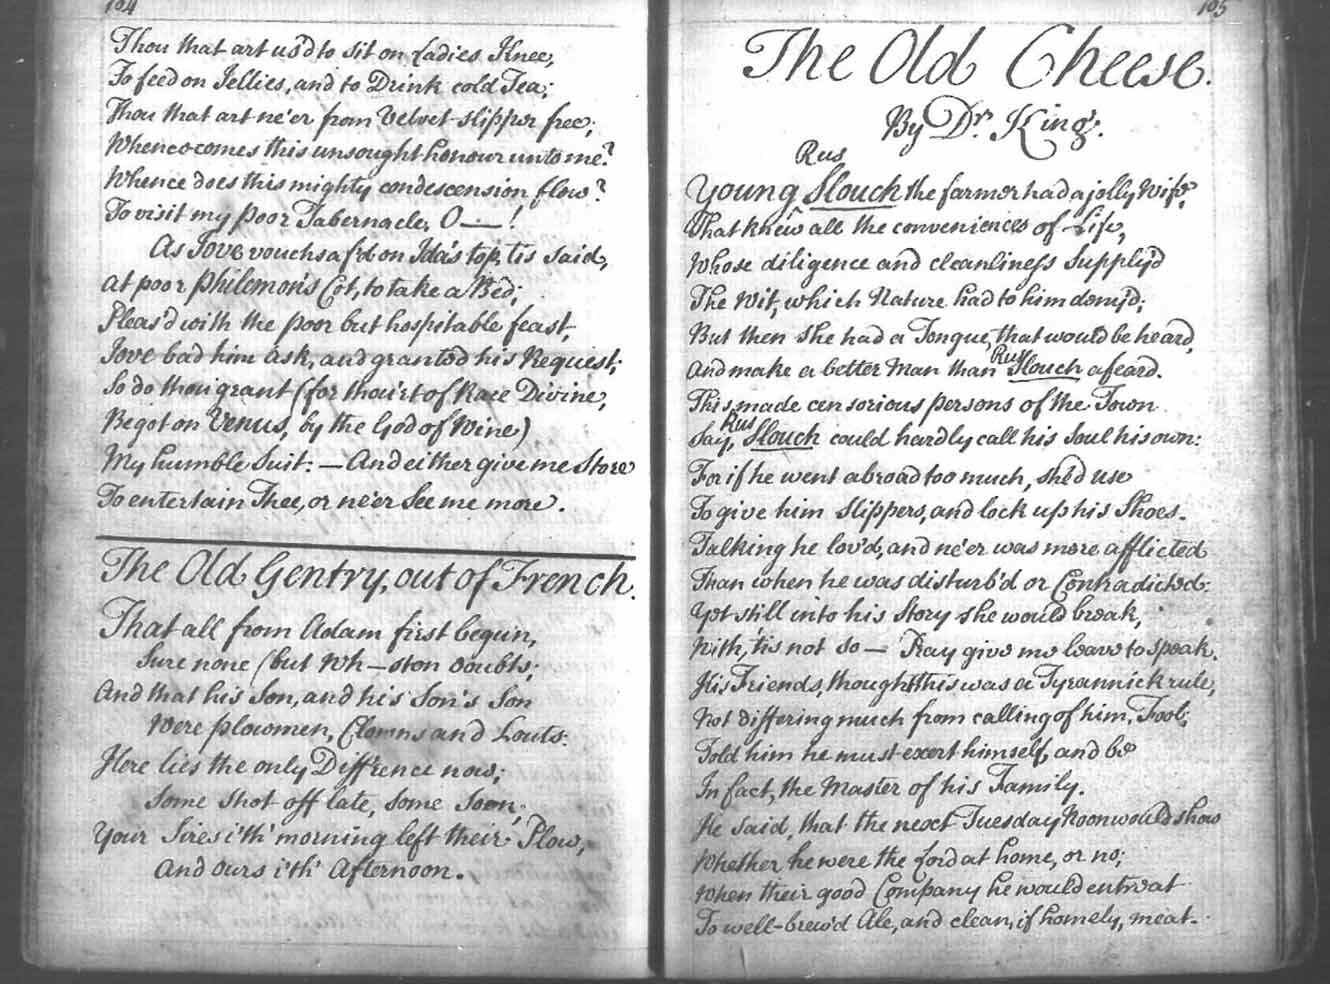 104
Thou that art us'd to sit on Ladies Knee,
To feed on Jellies, and to Drink cold Tea;
Thou that art ne'er from Velvet slipper free;
Whence comes this unsought honour unto me?
Whence does this mighty condescension flow?
To visit my poor Tabernacle, O—!
As Jove vouchsaf'd on Ida's top, tis said,
at poor Philemon's Cot, to take a Bed;
Pleas'd with the poor but hospitable feast,
Jove bad him ask, and granted his Request;
So do thou grant (for thou'rt of Race Divine,
Begot on Venus, by the God of Wine)
My humble Suit: — And either give me Store
To entertain Thee, or ne'er See me more.
The Old Gentry, out of French.
That all from Adam first begun,
Sure none (but Wh—ston doubts;
And that his Son, and his Son's Son
Were plowmen, Clowns and Louts:
Here lies the only Diff'rence now;
Some shot off late, some Soon;
Your Sires i'th' morning left their Plow,
And ours i'th' Afternoon.
105
The Old Cheese.
By Dr. King.
Rus
Young Slouch the farmer had a jolly Wife,
That knew all the conveniences of Life,
Whose diligence and cleanliness Supply'd
The Wit, which Nature had to him deny'd;
But then she had a Tongue, that would be heard,
Rus
And make a better Man than Slouch afeard.
This made censorious persons of the Town
Rus
Say, Slouch could hardly call his Soul his own:
For if he went abroad too much, she'd use
To give him Slippers, and lock up his Shoes.
Talking he lov'd, and ne'er was more afflicted
Than when he was disturb'd or Contradicted:
Yet still into his Story she would break,
With, 'tis not so — Pray give me leave to speak.
His Friends, thought this was a Tyrannick rule,
Not differing much from calling of him, Fool;
Told him he must exert himself, and be
In fact, the Master of his Family.
He said, that the next Tuesday Noon would show
Whether he were the Lord at home, or no;
When their good Company he would entreat
To well-brew'd Ale, and clean, if homely, meat.